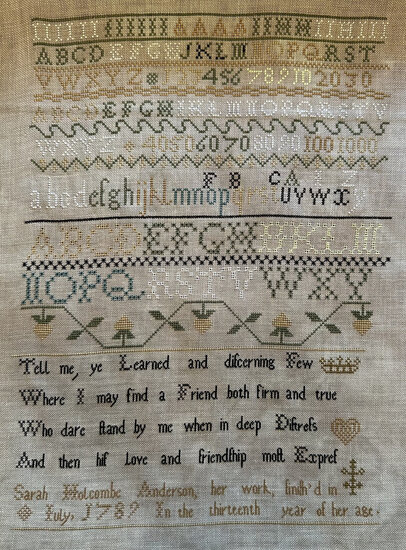 ABCD EFGH JKLM NOPQ RST
VWXYZ 123 456 78910 2030
ABCD EFGH IKLM NOPQRSTV
WXYZ 4050 6070 8090 100 1000
abcd efgh ijkl mnop qrst
F 8 C A
UVWX YZ
ABCD EFGH IJKLM
NOPQ RSTV WXY
Tell me, ye Learned and diſcerning Few
Where I may find a Friend both firm and true
Who dare ſtand by me when in deep Diſtreſs
And then hiſ Love and friendſhip moſt Expreſ
Sarah Holcombe Anderson, her work, finiſh'd in
July, 1789 In the thirteenth year of her age.